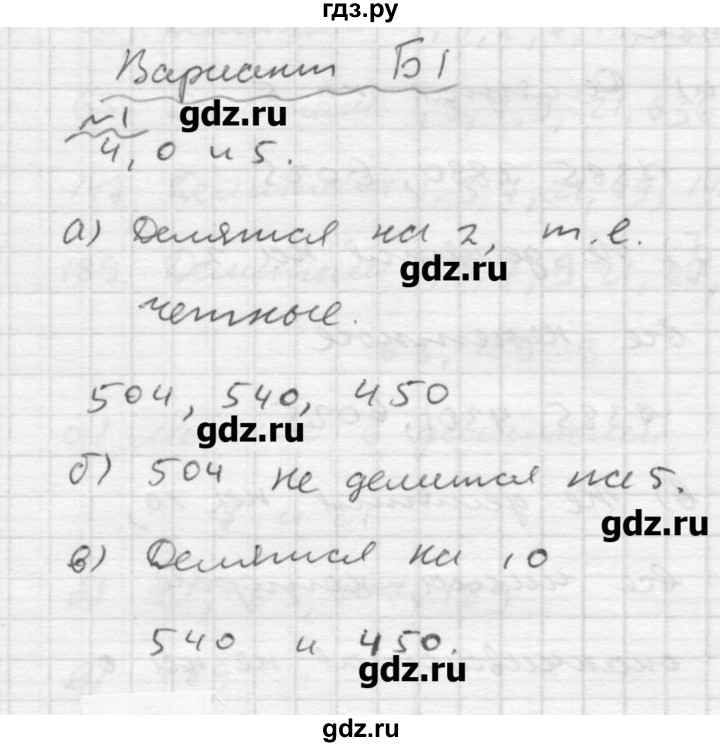 гдз.ру
Вариант Б1
gdz.ru
№1
4, 0 и 5.
а) Делятся на 2, т.е.
gdz.ru
четные.
504, 540, 450
gdz.ru
б) 504 не делится на 5.
gdz.ru
в) Делятся на 10
540 и 450.
gdz.ru
gdz.ru